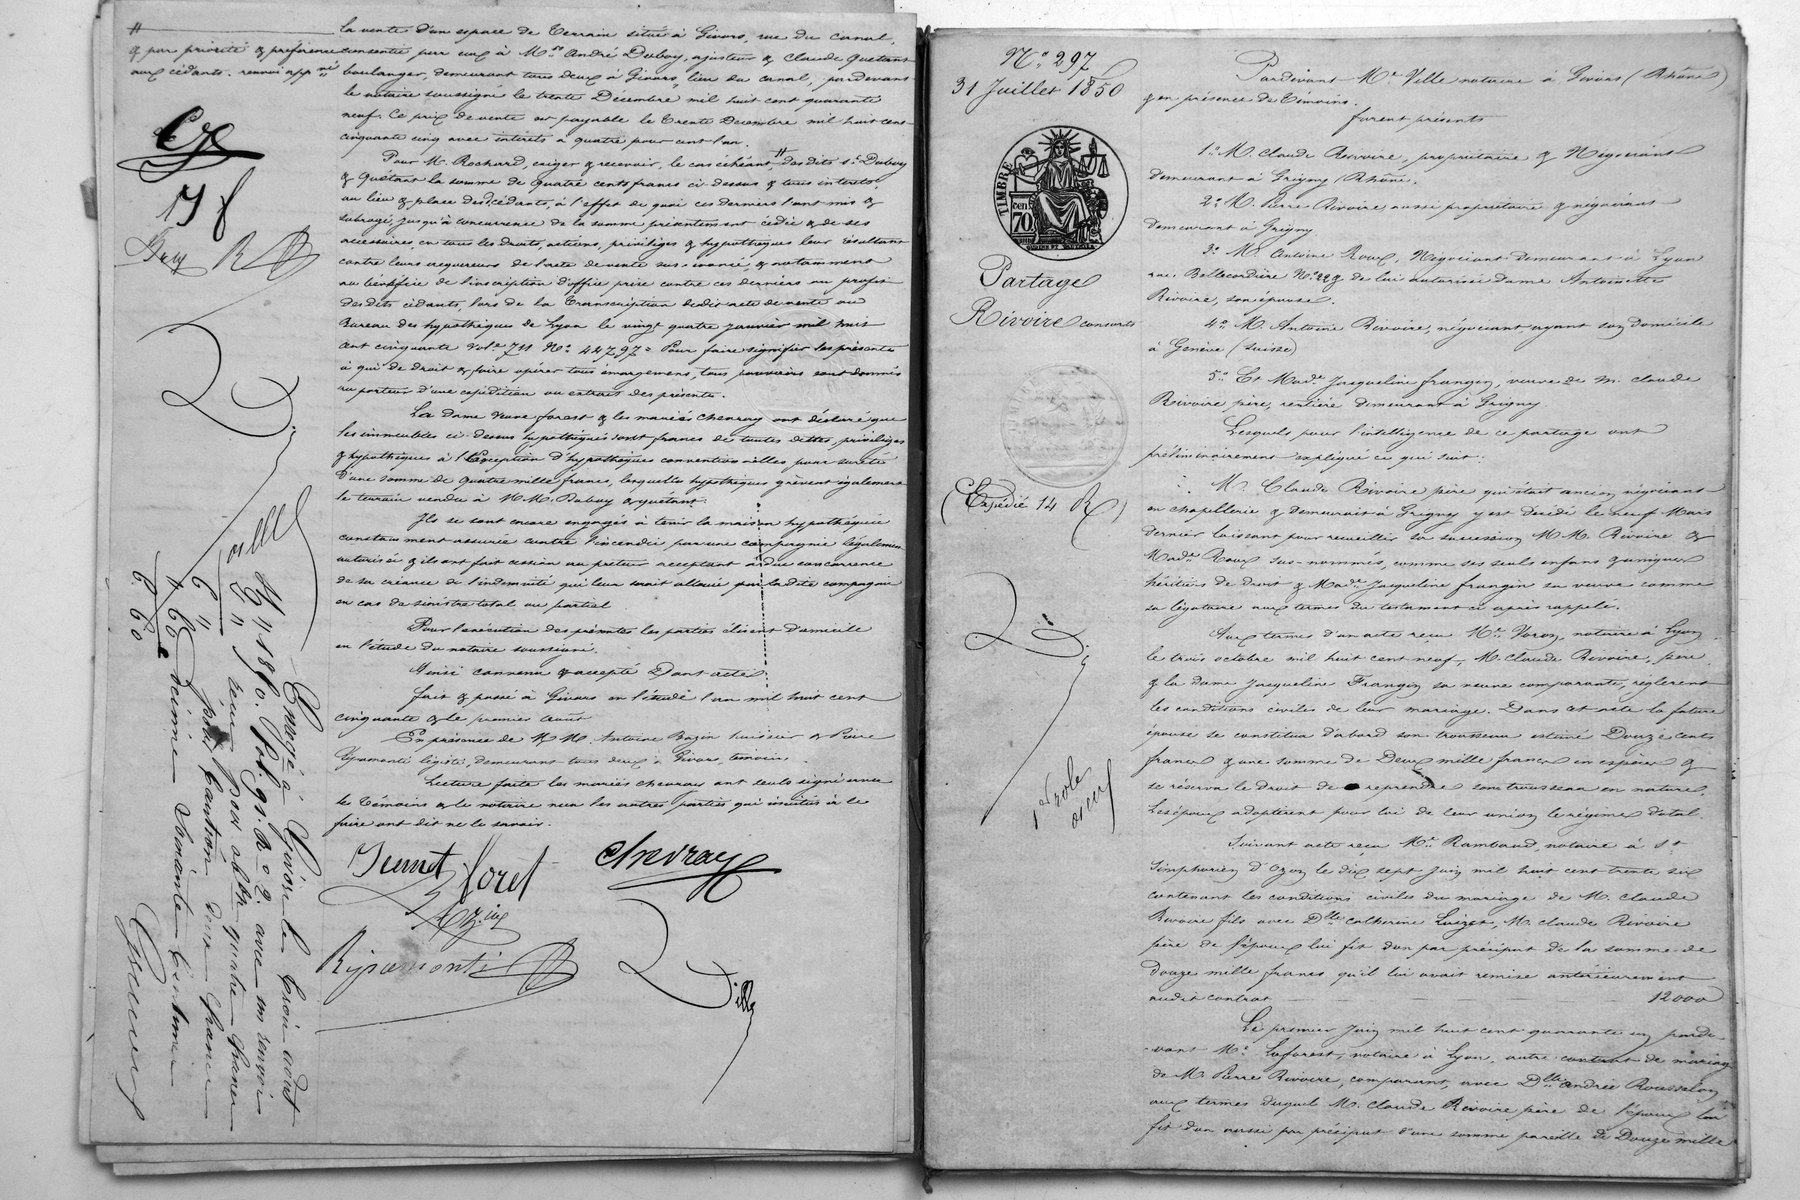 la vente d'un espace de terrain situé à Givors, rue du canal,
& par priorité & préférence
aux cédants. renvoi app.né
consentie par eux à Mrs André Dubuy, ajusteur & Claude Quetant
boulanger, demeurant tous deux à Givors, lieu du canal, pardevant
le notaire soussigné le trente Décembre mil huit cent quarante
neuf. Ce prix de vente est payable le trente Décembre mil huit cent
cinquante cinq avec intérêts à quatre pour cent l'an.
Pour M. Rochard, exiger & recevoir, le cas échéant, " des dits srs Dubuy
& Quétant la somme de quatre cents francs ci dessus & tous intérets,
au lieu & place des cédants, à l'effet de quoi ces derniers l'ont mis &
subrogé, jusqu'à concurrence de la somme présentement cédée & de ses
accessoires, en tous les droits, actions, privilèges & hypothèques leur résultant
contre leurs acquéreurs de l'acte de vente sus-énoncé, & notamment
au bénéfice de l'inscription d'office prise contre ces derniers au profit
des dits cédants, lors de la transcription dudit acte de vente au
Bureau des hypothèques de Lyon le vingt quatre janvier mil huit
cent cinquante vol.e 711 No. 44797. Pour faire signifier les présentes
à qui de droit & faire opérer tous émargemens, tous pouvoirs sont donnés
au porteur d'une expédition ou extrait des présentes.
La Dame veuve forest & les mariés Chevray ont déclaré que
les immeubles ci-dessus hypothéqués sont francs de toutes dettes, privilèges
& hypothèques à l'Exception d'hypothèques conventionnelles, pour sureté
d'une somme de quatre mille francs, lesquelles hypothèques grèvent également
le terrain vendu à M.M. Dubuy & quétant.
Ils se sont encore engagés à tenir la maison hypothéquée
constamment assurée contre l'incendie par une compagnie légalement
autorisée & ils ont fait cession au prêteur acceptant à due concurrence
de sa créance de l'indemnité qui leur serait allouée par ladite compagnie
en cas de sinistre total ou partiel
Pour l'exécution des présentes les parties élisent domicile
en l'étude du notaire soussigné.
Ainsi convenu & accepté Dont acte
fait & passé à Givors en l'étude l'an mil huit cent
cinquante & le premier août
En présence de M.M. Antoine Bazin huissier & Pierre
Ripamonti légiste, demeurant tous deux à Givors, témoins.
Lecture faite les mariés chevray ont seuls signé avec
les témoins & le notaire non les autres parties qui invitées à le
faire ont dit ne le savoir.
Jf
Ville
foret
chevray
Bazin
Ripamonti
Ville
Enregé à Givors le trois aout
1850. fol. 91. R. c. 2. avec un renvoi
reçu pour obl.on quatre francs
pour caution deux francs
décime soixante centimes
6 "
" 60
6 60
No. 297
31 Juillet 1850
TIMBRE
70
Partage
Rivoire consorts
(Expédié 14 R)
1er rôle
Pardevant Me Ville notaire à Givors (Rhône)
& en présence de témoins.
furent présents
1o. M. Claude Rivoire, propriétaire & Négociant
demeurant à Grigny (Rhône).
2o. M. Pierre Rivoire aussi propriétaire & négociant
demeurant à Grigny.
3o. M. Antoine Roux, Négociant demeurant à Lyon
rue Bellecordière No. 22 & de lui autorisée Dame Antoinette
Rivoire, son épouse.
4o. M. Antoine Rivoire, négociant ayant son domicile
à Genève (Suisse)
5o. Et Made Jacqueline frangin, veuve de M. Claude
Rivoire père, rentière demeurant à Grigny.
Lesquels pour l'intelligence de ce partage ont
préliminairement expliqué ce qui suit:
M. Claude Rivoire père qui était ancien négociant
en chapellerie & demeurait à Grigny y est décédé le neuf Mars
dernier laissant pour recueillir sa succession M.M. Rivoire &
Made Roux sus-nommés, comme ses seuls enfans & uniques
héritiers de droit & Made Jacqueline frangin sa veuve comme
sa légataire aux termes du testament ci après rappelé.
Aux termes d'un acte reçu Me Voron, notaire à Lyon
le trois octobre mil huit cent neuf, M. Claude Rivoire, père
& la dame Jacqueline Frangin sa veuve comparante, réglèrent
les conditions civiles de leur mariage. Dans cet acte la future
épouse se constitua d'abord son trousseau estimé Douze cents
francs & une somme de Deux mille francs en espèces &
se réserva le droit de reprendre son trousseau en nature.
Les époux adoptèrent pour loi de leur union le régime dotal.
Suivant acte reçu Me Rambaud, notaire à St
Simphorien d'Ozon le dix sept Juin mil huit cent trente six
contenant les conditions civiles du mariage de M. Claude
Rivoire fils avec Dlle Catherine Loizet, M. Claude Rivoire
père de l'époux lui fit don par préciput de la somme de
Douze mille francs qu'il lui avait remise antérieurement
audit contrat 12000
Le premier Juin mil huit cent quarante un parde-
-vant Me Laforest, notaire à Lyon, autre contrat de mariage
de M. Pierre Rivoire, comparant, avec Dlle andrée Rousselon
aux termes duquel M. Claude Rivoire père de l'époux lui
fit don aussi par préciput d'une somme pareille de Douze mille